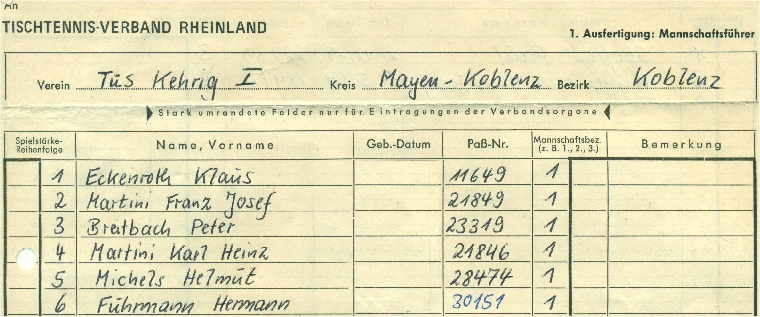 An
TISCHTENNIS-VERBAND RHEINLAND
1. Ausfertigung: Mannschaftsführer
Verein Tus Kehrig I Kreis Mayen-Koblenz Bezirk Koblenz
Stark umrandete Felder nur für Eintragungen der Verbandsorgane
Spielstärke-Reihenfolge Name, Vorname Geb.-Datum Paß-Nr. Mannschaftsbez. (z. B. 1., 2., 3.) Bemerkung
1 Eckenroth Klaus 11649 1
2 Martini Franz Josef 21849 1
3 Breitbach Peter 23319 1
4 Martini Karl Heinz 21846 1
5 Michels Helmut 28474 1
6 Fuhrmann Hermann 30151 1